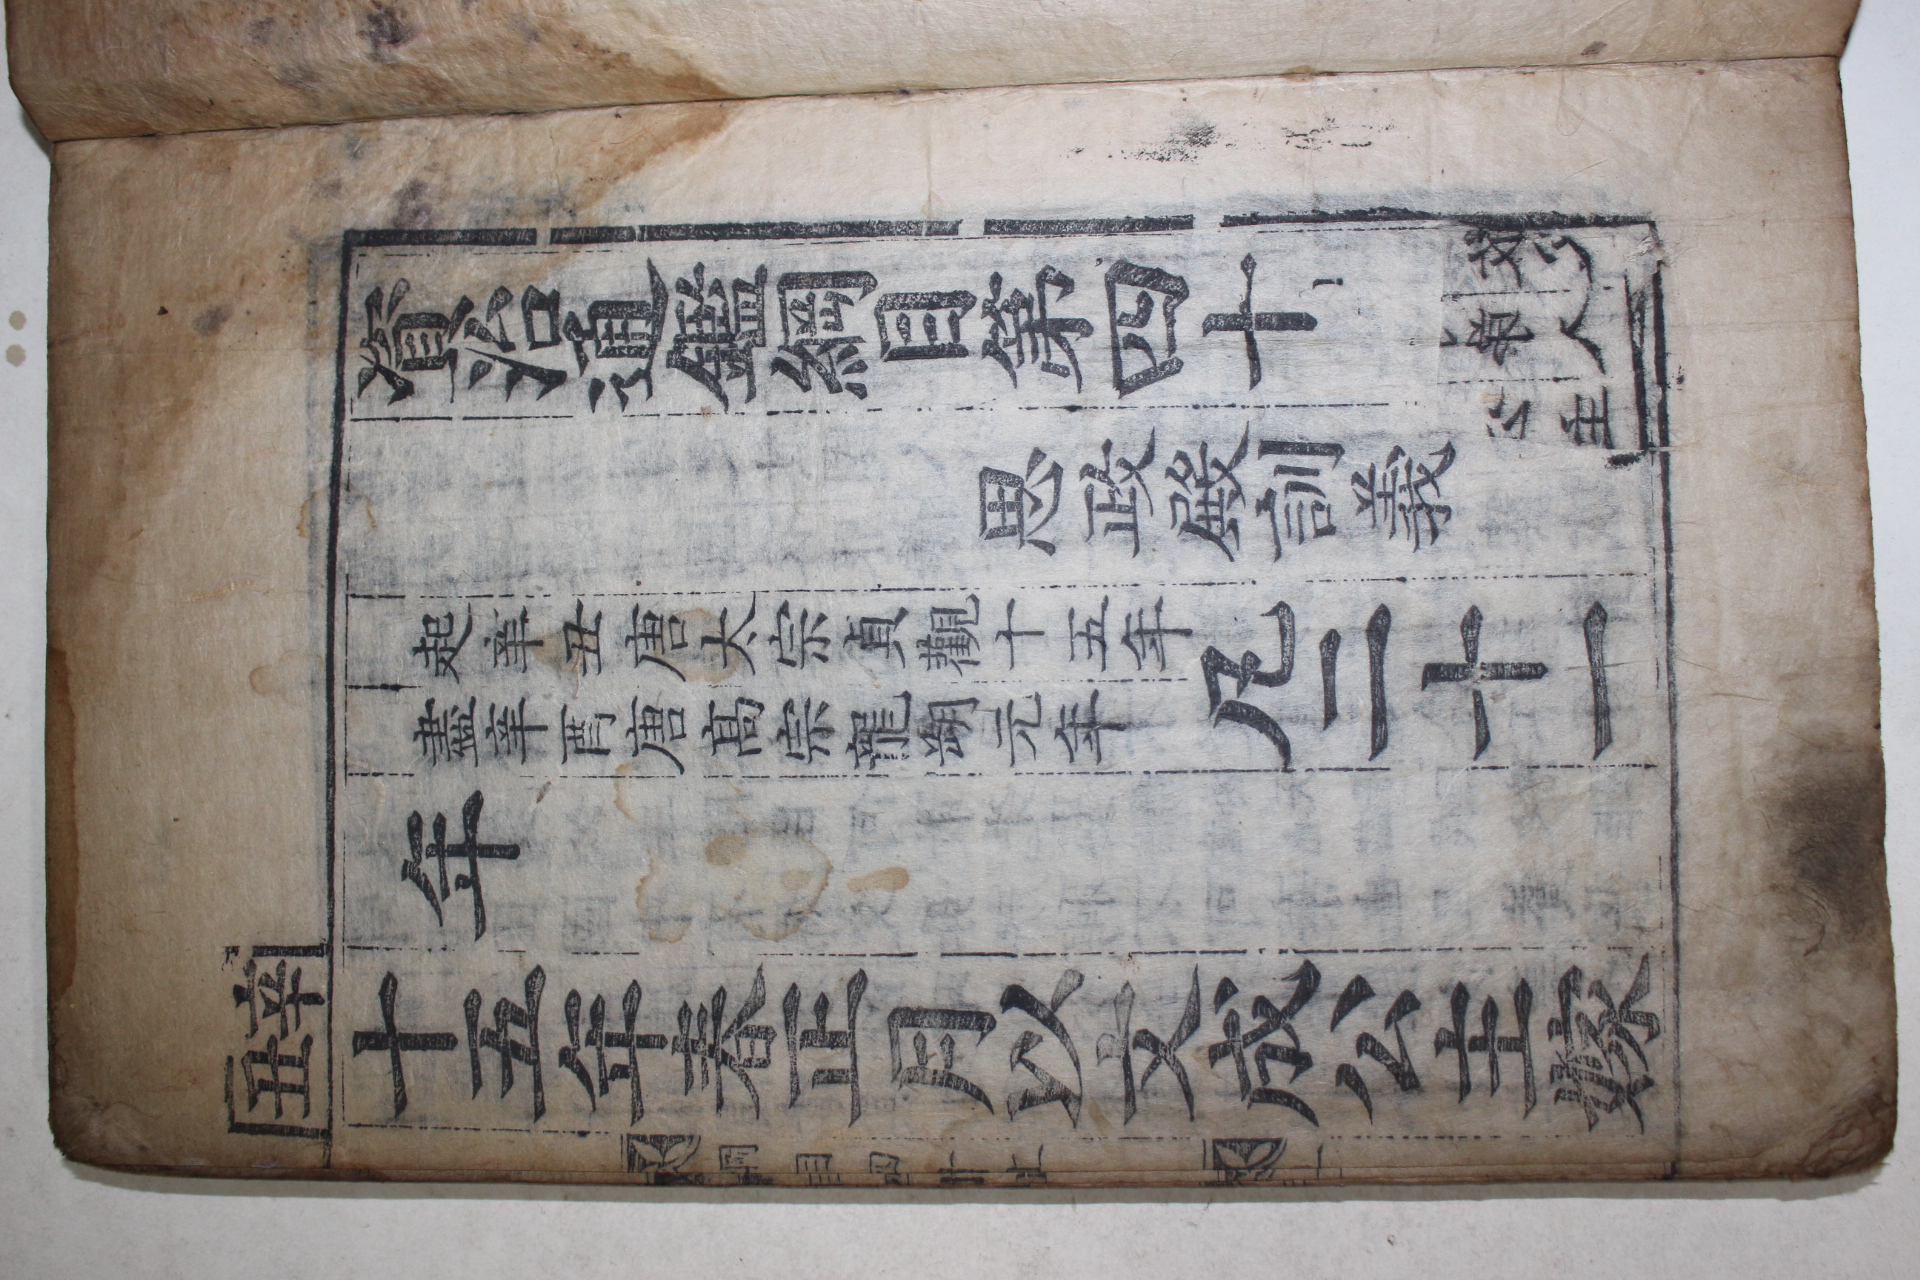 資治通鑑綱目第四十
思政殿訓義
起辛丑唐太宗貞觀十五年
盡辛酉唐高宗龍朔元年
凡二十一
年
辛丑
十五年春正月以文成公主嫁
綱目四十上
弟人
公主